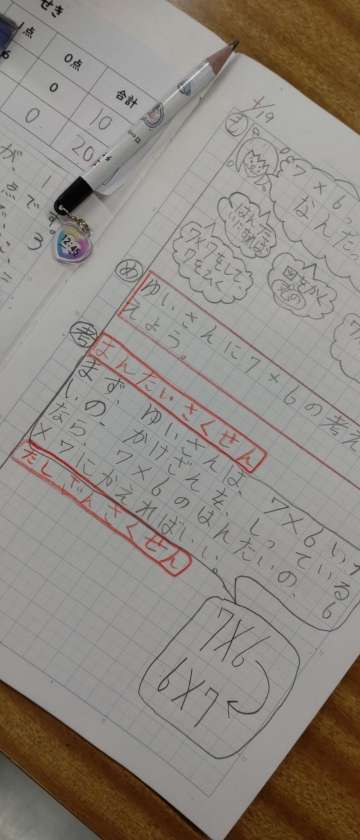 せき
1点 0点 合計
0
0 10
20
12:45
が、1
点で
3
4/19
も
7×6っ
なん
はんたい
にすれば
7×7をして
7をひく
図をかく
その
め
ゆいさんに7×6の考え
えよう。
考
はんたいさくせん
まず、ゆいさんは、7×6い
いの、かけざんを、しっている
なら、7×6のはんたいの、6
×7にかえればいい。
たしざんさくせん
7×6
6×7